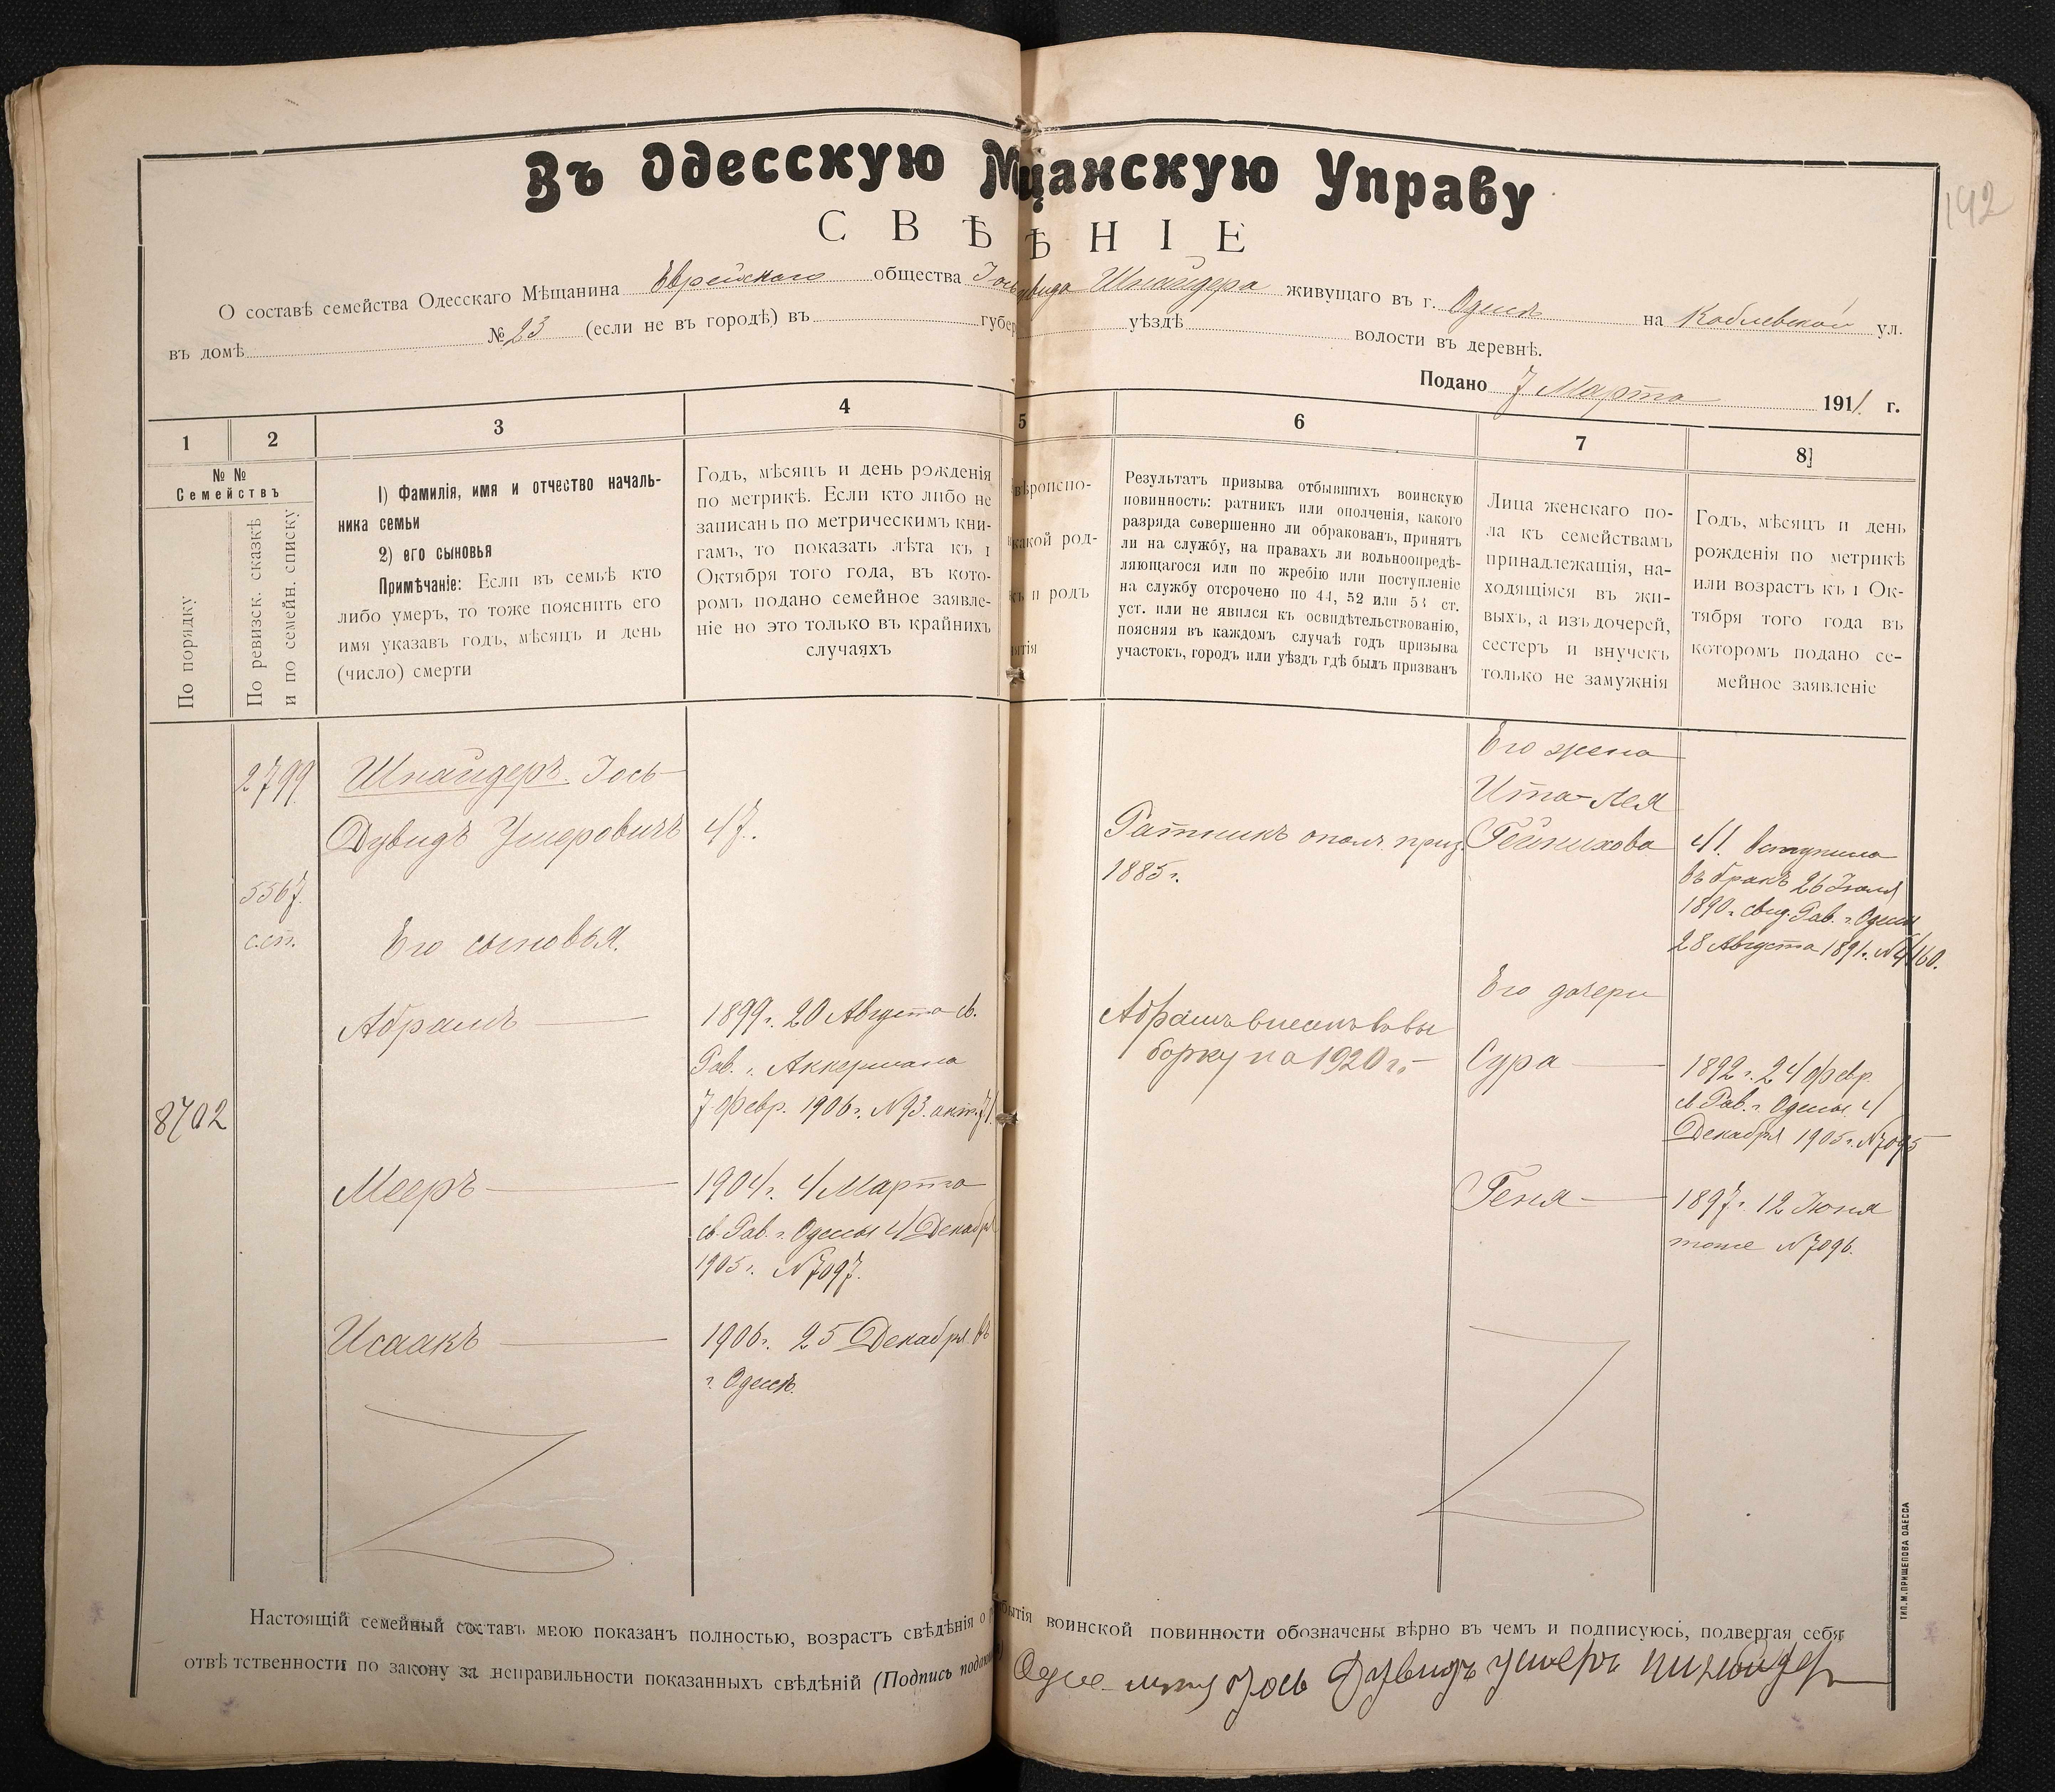 Въ Одесскую Мщанскую Управу
142
СВѢѢНІЕ
О составѣ семейства Одесскаго Мѣщанина Еврейскаго общества Іось Дувида Шнайдера живущаго въ г. Одессѣ на Коблевской ул.
въ домѣ № 23 (если не въ городѣ) въ губер уѣздѣ волости въ деревнѣ.
Подано 7 Марта 1911 г.
1 2 3 4 5 6 7 8
№ №
Семействъ
По порядку
По ревизск. сказкѣ
и по семейн. списку
1) Фамилія, имя и отчество началь-
ника семьи
2) его сыновья
Примѣчаніе: Если въ семьѣ кто
либо умеръ, то тоже пояснить его
имя указавъ годъ, мѣсяцъ и день
(число) смерти
Годъ, мѣсяцъ и день рожденія
по метрикѣ. Если кто либо не
записанъ по метрическимъ кни-
гамъ, то показать лѣта къ 1
Октября того года, въ кото-
ромъ подано семейное заявле-
ніе но это только въ крайнихъ
случаяхъ
вѣроиспо-
какой род-
и родъ
ятія
Результатъ призыва отбывшихъ воинскую
повинность: ратникъ или ополченія, какого
разряда совершенно ли обракованъ, принятъ
ли на службу, на правахъ ли вольноопредѣ-
ляющагося или по жребію или поступленіе
на службу отсрочено по 44, 52 или 53 ст.
уст. или не явился къ освидѣтельствованію,
поясняя въ каждомъ случаѣ годъ призыва
участокъ, городъ или уѣздъ гдѣ былъ призванъ
Лица женскаго по-
ла къ семействамъ
принадлежащія, на-
ходящіяся въ жи-
выхъ, а изъ дочерей,
сестеръ и внучекъ
только не замужнія
Годъ, мѣсяцъ и день
рожденія по метрикѣ
или возрастъ къ 1 Ок-
тября того года въ
которомъ подано се-
мейное заявленіе
8702
2799
5567
с.сп.
Шнайдеръ Іось-
Дувидъ Умеровичъ
47.
Его сыновья.
Абрамъ
1899 г. 20 Августа св.
Рав. г. Аккермана
7 Февр. 1906 г. N 93. акт. 71.
Мееръ
1904 г. 4 Марта
св. Рав. г. Одессы 4 Декабря
1905 г. N 7097.
Исаакъ
1906 г. 25 Декабря въ
г. Одессѣ.
Ратникъ ополч приз.
1885 г.
Абрамъ внесенъ въ вы
борку на 1920 г.
Его жена
Ита-Лея
Гейнихова
Его дочери
Сура
Геня
41. вступила
въ бракъ 26 Іюля
1890 г. свид. Рав. г. Одессы
28 Августа 1891 г. N 4160.
1892 г. 24 Февр.
св Рав. г. Одессы 4
Декабря 1905 г. N 7095
1897 г. 12 Іюня
тоже N 7096.
Настоящій семейный составъ мною показанъ полностью, возрастъ свѣдѣнія о бытія воинской повинности обозначены вѣрно въ чемъ и подписуюсь, подвергая себя
отвѣтственности по закону за неправильности показанныхъ свѣдѣній (Подпись подаю
Іось Дувидъ Умеръ Шнайдеръ
ТИП. М. ПРИЩЕПОВА ОДЕССА